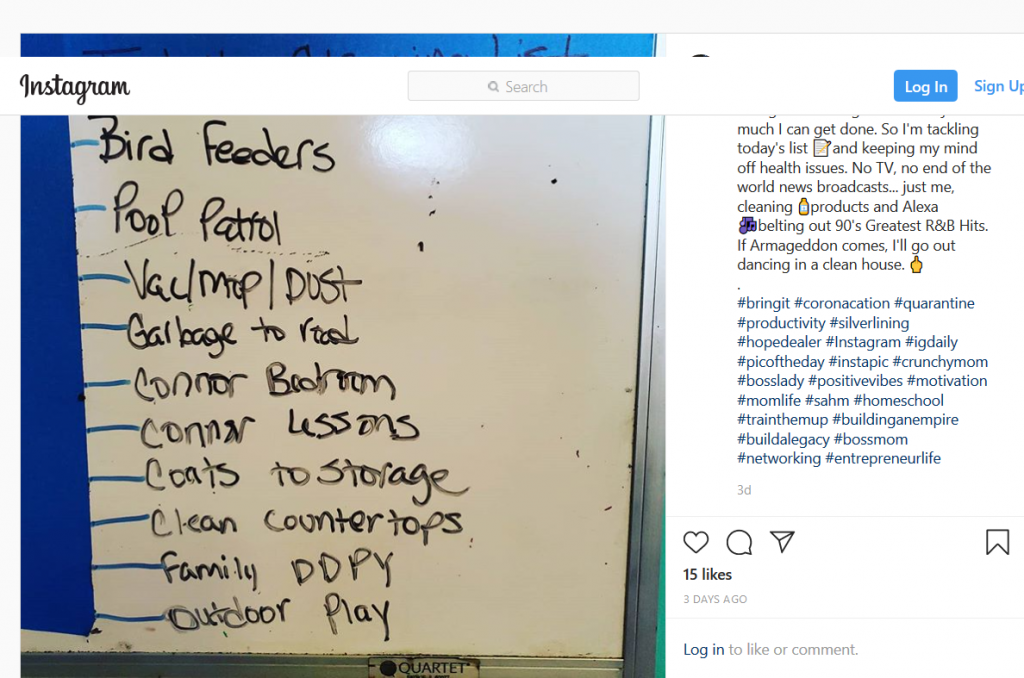 Instagram
Search
Log In
Sign Up
Bird Feeders
Poop Patrol
Vac/Mop/DUST
Garbage to road
Connor Bedroom
Connor Lessons
Coats to Storage
Clean Countertops
Family DDPY
Outdoor Play
QUARTET
much I can get done. So I'm tackling
today's list 📝and keeping my mind
off health issues. No TV, no end of the
world news broadcasts... just me,
cleaning 🧴products and Alexa
🎶belting out 90's Greatest R&B Hits.
If Armageddon comes, I'll go out
dancing in a clean house. 🖕
.
#bringit #coronacation #quarantine
#productivity #silverlining
#hopedealer #Instagram #igdaily
#picoftheday #instapic #crunchymom
#bosslady #positivevibes #motivation
#momlife #sahm #homeschool
#trainthemup #buildinganempire
#buildalegacy #bossmom
#networking #entrepreneurlife
3d
15 likes
3 DAYS AGO
Log in to like or comment.